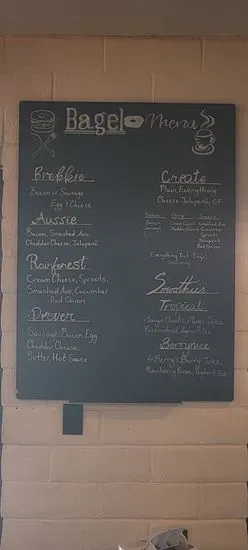 Bagel Menu
Brekkie
Bacon or Sausage
Egg & Cheese
Aussie
Bacon, Smashed Avo,
Cheddar Cheese, Jalapeño
Rainforest
Cream Cheese, Sprouts,
Smashed Avo, Cucumber
Red Onion
Drover
Sausage, Bacon, Egg
Cheddar Cheese
Butter, Hot Sauce
Create
Plain, Everything
Cheese Jalapeño, GF
Protein Dairy Greens
Bacon Cream Cheese Smashed Avo
Sausage Cheddar Cheese Cucumber
Sprouts
Jalapeño
Red Onion
Everything But Bagel
Seasoning
Smoothies
Tropical
Mango Chunks, Mango Juice
Passionfruit, Yoghurt, Ice
Berrynice
4 Berry's, Berry Juice
Raspberry Puree, Yoghurt, Ice